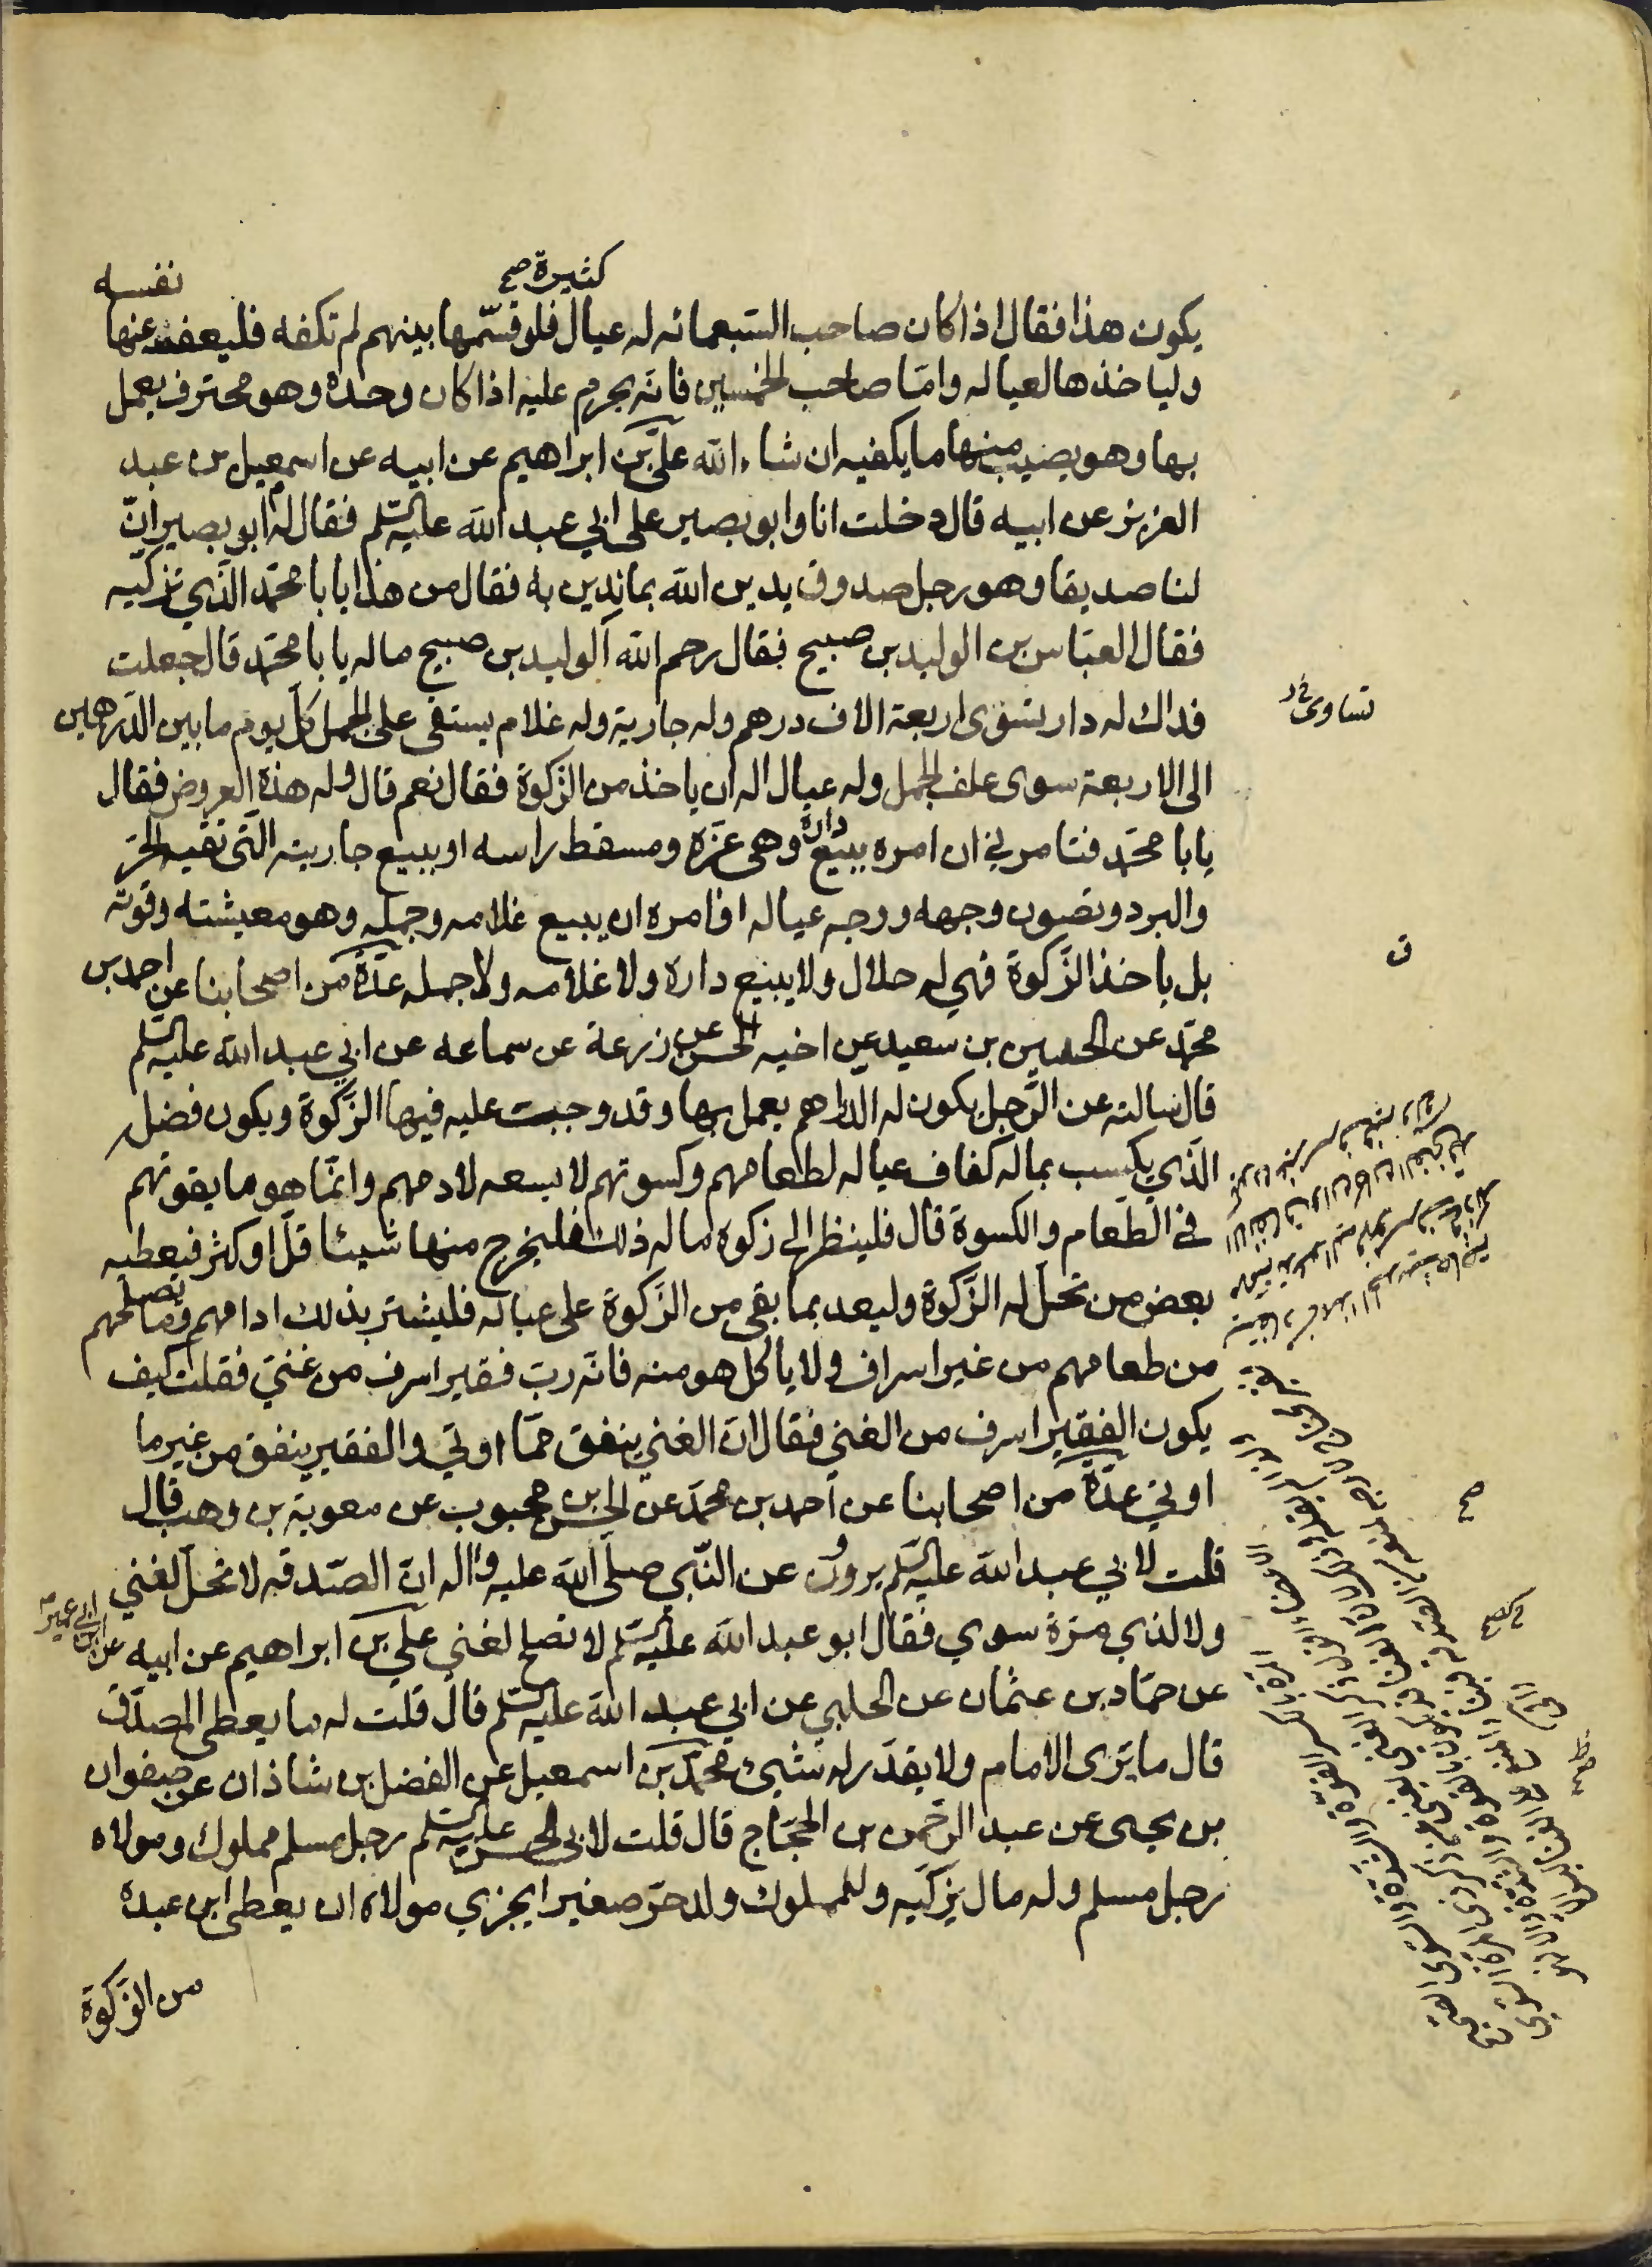 كثيرة صح
نفسه
يكون هذا فقال اذا كان صاحب السبعمائه له عيال فلو قسّمها بينهم لم تكفه فليعفف عنها
ولياخذها لعياله وامّا صاحب الخمسين فانّه يحرم عليه اذا كان وحده وهو محترف يعمل
بها وهو يصيب منها ما يكفيه ان شاء الله علي بن ابراهيم عن ابيه عن اسمعيل بن عبد
العزيز عن ابيه قال دخلت انا وابو بصير على ابي عبد الله عليه السّلم فقال له ابو بصير انّ
لنا صديقا وهو رجل صدوق يدين الله بما ندين به فقال من هذا يا با محمّد الّذي تزكّيه
فقال العبّاس بن الوليد بن صبيح فقال رحم الله الوليد بن صبيح ماله يا با محمّد قال جعلت
فداك له دار تسوى اربعة الاف درهم وله جارية وله غلام يستقى على الجمل كلّ يوم ما بين الدّرهمين
تساوى خ د
الى الاربعة سوى علف الجمل وله عيال اله ان ياخذ من الزّكوة فقال نعم قال وله هذه العروض فقال
يا با محمّد فتامرني ان امره ببيع داره وهى عزّه ومسقط راسه او ببيع جاريته الّتى تقيه الحرّ
والبرد وتصون وجهه ووجه عياله او امره ان يبيع غلامه وجمله وهو معيشته وقوته
بل ياخذ الزّكوة فهي له حلال ولا يبيع داره ولا غلامه ولا جمله عدّة من اصحابنا عن احمد بن
محمّد عن الحسين بن سعيد عن اخيه الحسن عن زرعة عن سماعه عن ابي عبد الله عليه السّلم
قال سالته عن الرّجل يكون له الدراهم يعمل بها وقد وجبت عليه فيها الزّكوة ويكون فضله
الّذي يكسب بماله كفاف عياله لطعامهم وكسوتهم لا يسعه لادمهم وانّما هو ما يقوتهم
في الطّعام والكسوة قال فلينظر الى زكوة ماله ذلك فليخرج منها شيئا قلّ او كثر فيعطيه
بعض من تحلّ له الزّكوة وليعد بما بقى من الزّكوة على عياله فليشتر بذلك ادامهم وما يصلحهم
من طعامهم من غير اسراف ولا ياكل هو منه فانّه ربّ فقير اسرف من غنيّ فقلت كيف
يكون الفقير اسرف من الغني فقال انّ الغني ينفق ممّا اوتي والفقير ينفق من غير ما
اوتي عدّة من اصحابنا عن احمد بن محمّد عن الحسن بن محبوب عن معوية بن وهب قال
قلت لابي عبد الله عليه السّلم يروون عن النّبي صلى الله عليه واله انّ الصّدقه لا تحلّ لغني
ولا لذي مرّة سوي فقال ابو عبد الله عليه السّلم لا تصلح لغني علي بن ابراهيم عن ابيه عن ابن ابي عمير
عن حمّاد بن عثمان عن الحلبي عن ابي عبد الله عليه السّلم قال قلت له ما يعطى المصدّق
قال ما يرى الامام ولا يقدّر له شيئ محمّد بن اسمعيل عن الفضل بن شاذان عن صفوان
بن يحيى عن عبد الرّحمن بن الحجّاج قال قلت لابي الحسن عليه السّلم رجل مسلم مملوك ومولاه
رجل مسلم وله مال يزكّيه وللمملوك ولد حرّ صغير ايجزي مولاه ان يعطي ابن عبده
من الزّكوة